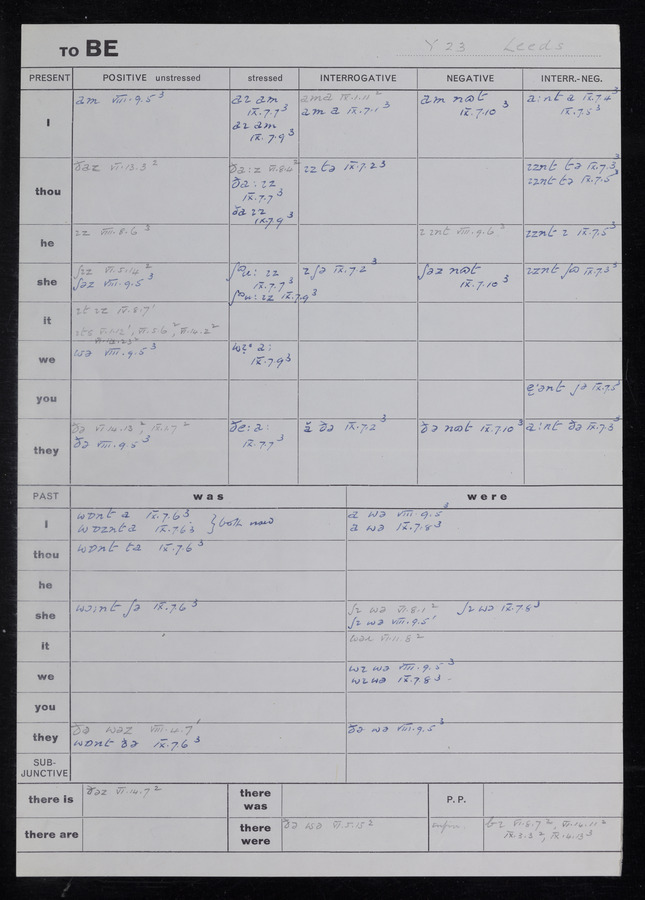 TO BE
Y 23 Leeds
PRESENT POSITIVE unstressed stressed INTERROGATIVE NEGATIVE INTERR.-NEG.
I
am VIII.9.5³
aɪ am
IX.7.7³
aɪ am
IX.7.9³
am a IX.7.1³
am nɒt
IX.7.10³
a:nt a IX.7.4³
IX.7.5³
thou
ðaz VI.13.3²
ða:z VI.8.4²
ða: ɪz
IX.7.7³
ða ɪz
IX.7.9³
ɪz tə IX.7.2³
ɪznt tə IX.7.3³
ɪznt tə IX.7.5³
he
ɪz VIII.8.6³
ɪznt VIII.9.6³
ɪznt ɪ IX.7.5³
she
ʃɪz VI.5.14²
ʃəz VIII.9.5³
IX.7.7³
IX.7.9³
z ʃə IX.7.2³
ʃəz nɒt
IX.7.10³
ɪznt ʃə IX.7.3³
it
ɪt ɪz IV.8.7¹
we
wə VIII.9.5³
a:
IX.7.9³
you
IX.7.5³
they
ðə VI.14.13²
ðə VIII.9.5³
ðe: a:
IX.7.7³
ə ðə IX.7.2³
ðə nɒt IX.7.10³
a:nt ðə IX.7.3³
PAST was were
I
wɒnt a IX.7.6³
wɒznt a IX.7.6³ } both used
a wə VIII.9.5³
a wə IX.7.8³
thou
wɒnt ta IX.7.6³
he
she
ʃə IX.7.6³
ʃɪ wə VI.8.1² ʃɪ wə IX.7.8³
ʃɪ wə VIII.9.5¹
it
VI.11.8²
we
wɪ wə VIII.9.5³
wɪ wə IX.7.8³
you
they
ðə wəz VIII.4.7¹
wɒnt ðə IX.7.6³
ðə wə VIII.9.5³
SUB-
JUNCTIVE
there is
ðəz VI.14.7²
there
was
P.P.
there are
there
were
ðə wə VI.5.15²
bɪ VI.5.7², VI.14.11²
IX.3.3², IX.4.13³